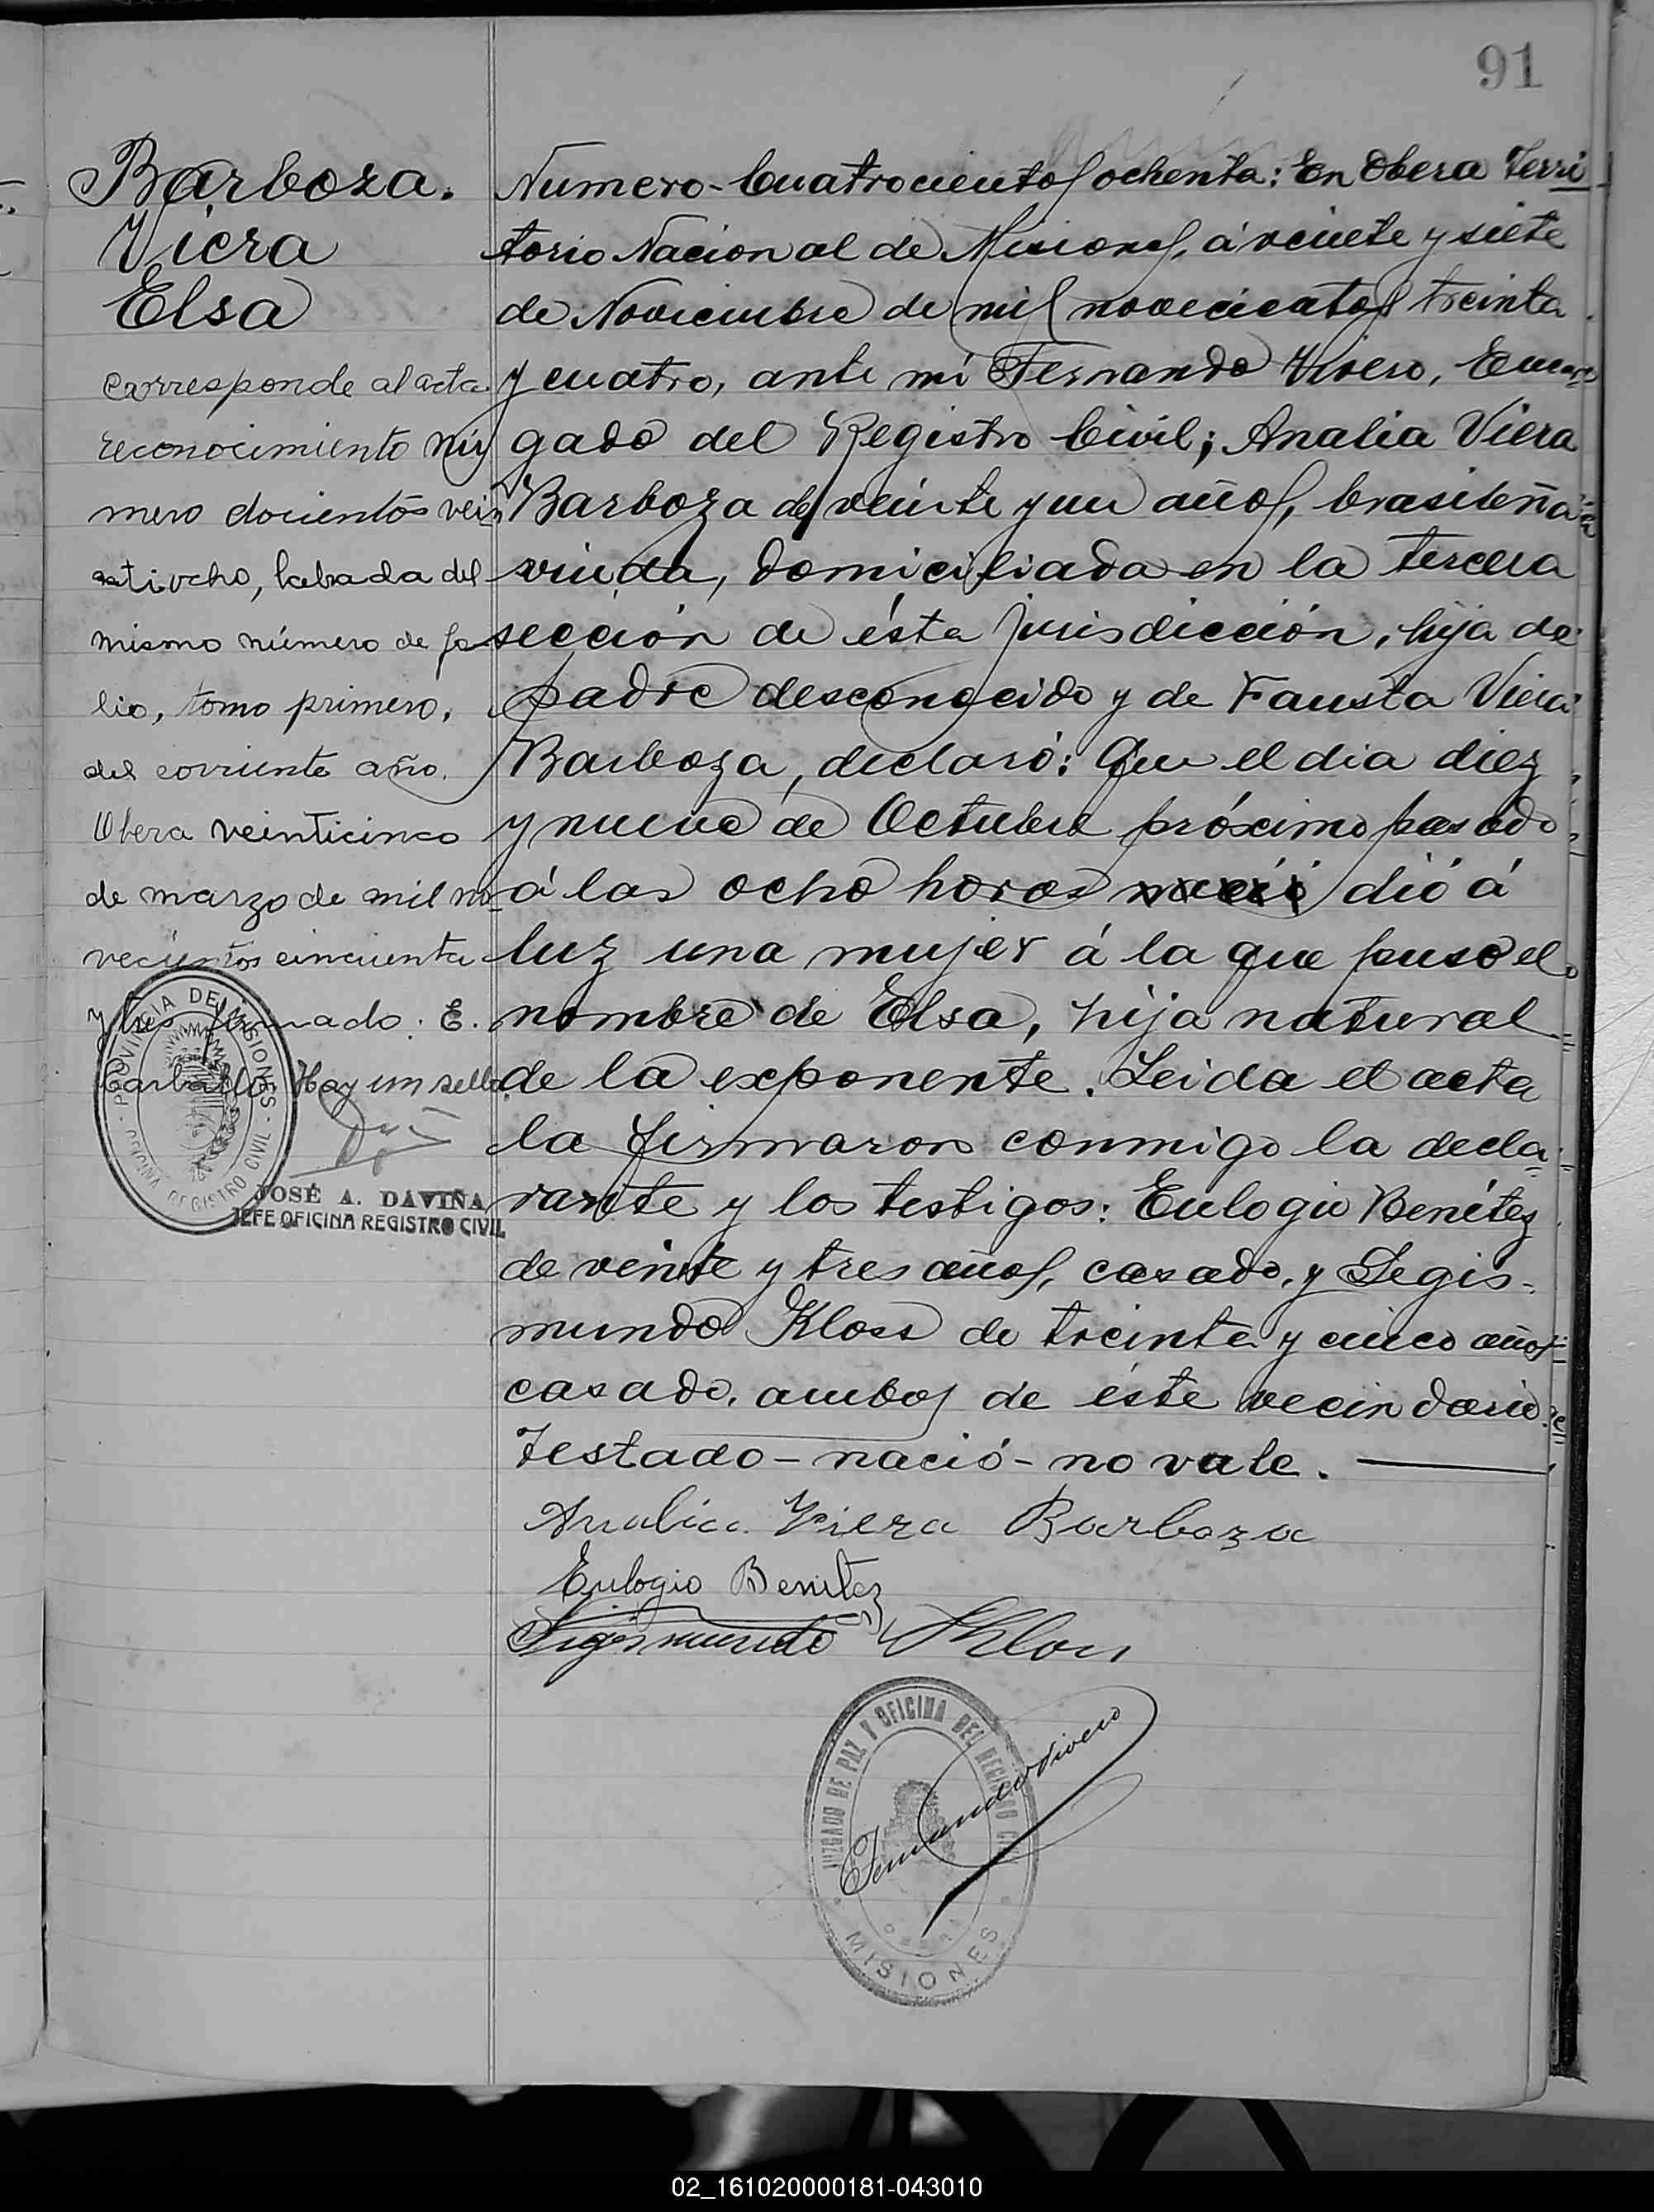 91
Barboza.
Viera
Elsa
Corresponde al acta
reconocimiento nú
mero docientos vein
tiocho, labrada del
mismo número de fo
lio, tomo primero,
del corriente año.
Obera veinticinco
de marzo de mil no
vecientos cincuenta
y tres firmado: E.
Carballo Hay un sello.
PROVINCIA DE MISIONES
OFICINA REGISTRO CIVIL
JOSÉ A. DAVIÑA
JEFE OFICINA REGISTRO CIVIL
Numero-Cuatrocientos ochenta: En Obera Terri
torio Nacional de Misiones, á veinte y siete
de Noviembre de mil novecientos treinta
y cuatro, ante mi Fernando Vivero, Encar
gado del Registro Civil; Analia Viera
Barboza de veinte y un años, brasileña
viuda, domiciliada en la tercera
sección de ésta jurisdicción, hija de
padre desconocido y de Fausta Viera
Barboza, declaró: Que el dia diez
y nueve de Octubre próximo pasado
á las ocho horas nació dió á
luz una mujer á la que puso el
nombre de Elsa, hija natural
de la exponente. Leida el acta
la firmaron conmigo la decla-
rante y los testigos: Eulogio Benítez
de veinte y tres años, casado, y Segis-
mundo Kloss de treinta y cinco años
casado, ambos de éste vecindario.
Testado-nació-no vale.
Analia Viera Barboza
Eulogio Benitez
Sigismundo Kloss
JUZGADO DE PAZ Y OFICINA DEL REGISTRO CIVIL
Fernando Vivero
MISIONES
02_161020000181-043010